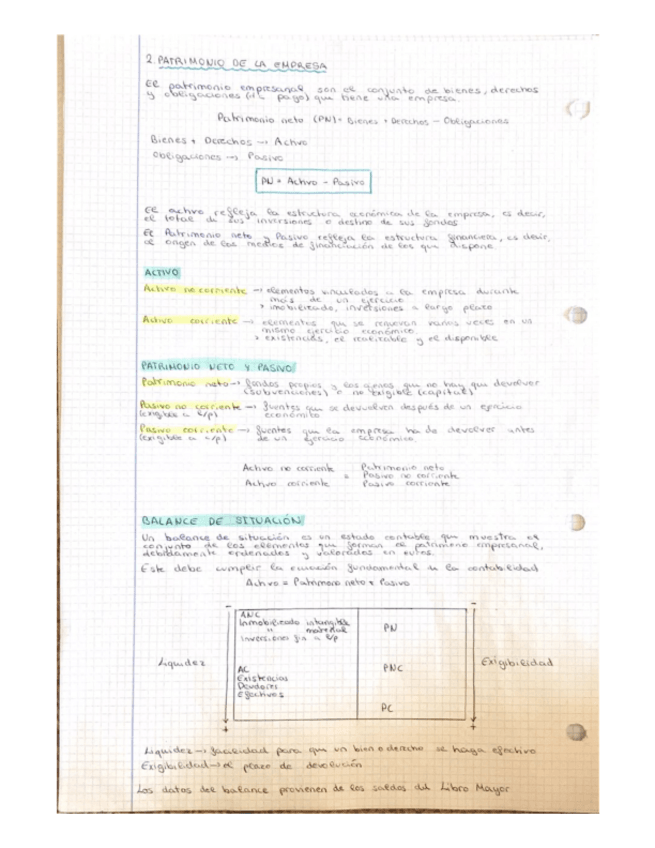 2. PATRIMONIO DE LA EMPRESA
El patrimonio empresarial son el conjunto de bienes, derechos
y obligaciones (de pago) que tiene una empresa.
Patrimonio neto (PN) = Bienes + Derechos - Obligaciones
Bienes + Derechos → Activo
Obligaciones → Pasivo
PN = Activo - Pasivo
El activo refleja la estructura económica de la empresa, es decir,
el total de sus inversiones o destino de sus fondos
El Patrimonio neto y Pasivo refleja la estructura financiera, es decir,
el origen de los medios de financiación de los que dispone.
ACTIVO
Activo no corriente → elementos vinculados a la empresa durante
más de un ejercicio
> inmobilizado, inversiones a largo plazo
Activo corriente → elementos que se renuevan varias veces en un
mismo ejercicio económico.
> existencias, el realizable y el disponible
PATRIMONIO NETO Y PASIVO
Patrimonio neto → fondos propios y los ajenos que no hay que devolver
(subvenciones) o no exigible (capital)
Pasivo no corriente → fuentes que se devuelven después de un ejercicio
(exigible a l/p) económico
Pasivo corriente → fuentes que la empresa ha de devolver antes
(exigible a c/p) de un ejercicio económico.
Activo no corriente Patrimonio neto
= Pasivo no corriente
Activo corriente Pasivo corriente
BALANCE DE SITUACIÓN
Un balance de situación es un estado contable que muestra el
conjunto de los elementos que forman el patrimonio empresarial,
debidamente ordenados y valorados en euros.
Este debe cumplir la ecuación fundamental de la contabilidad
Activo = Patrimonio neto + Pasivo
- -
ANC
Inmobilizado intangible
" material
Inversiones fin a l/p
PN
Liquidez
PNC
Exigibilidad
AC
Existencias
Deudores
Efectivos
PC
+ +
Liquidez → facilidad para que un bien o derecho se haga efectivo
Exigibilidad → el plazo de devolución
Los datos del balance provienen de los saldos del Libro Mayor